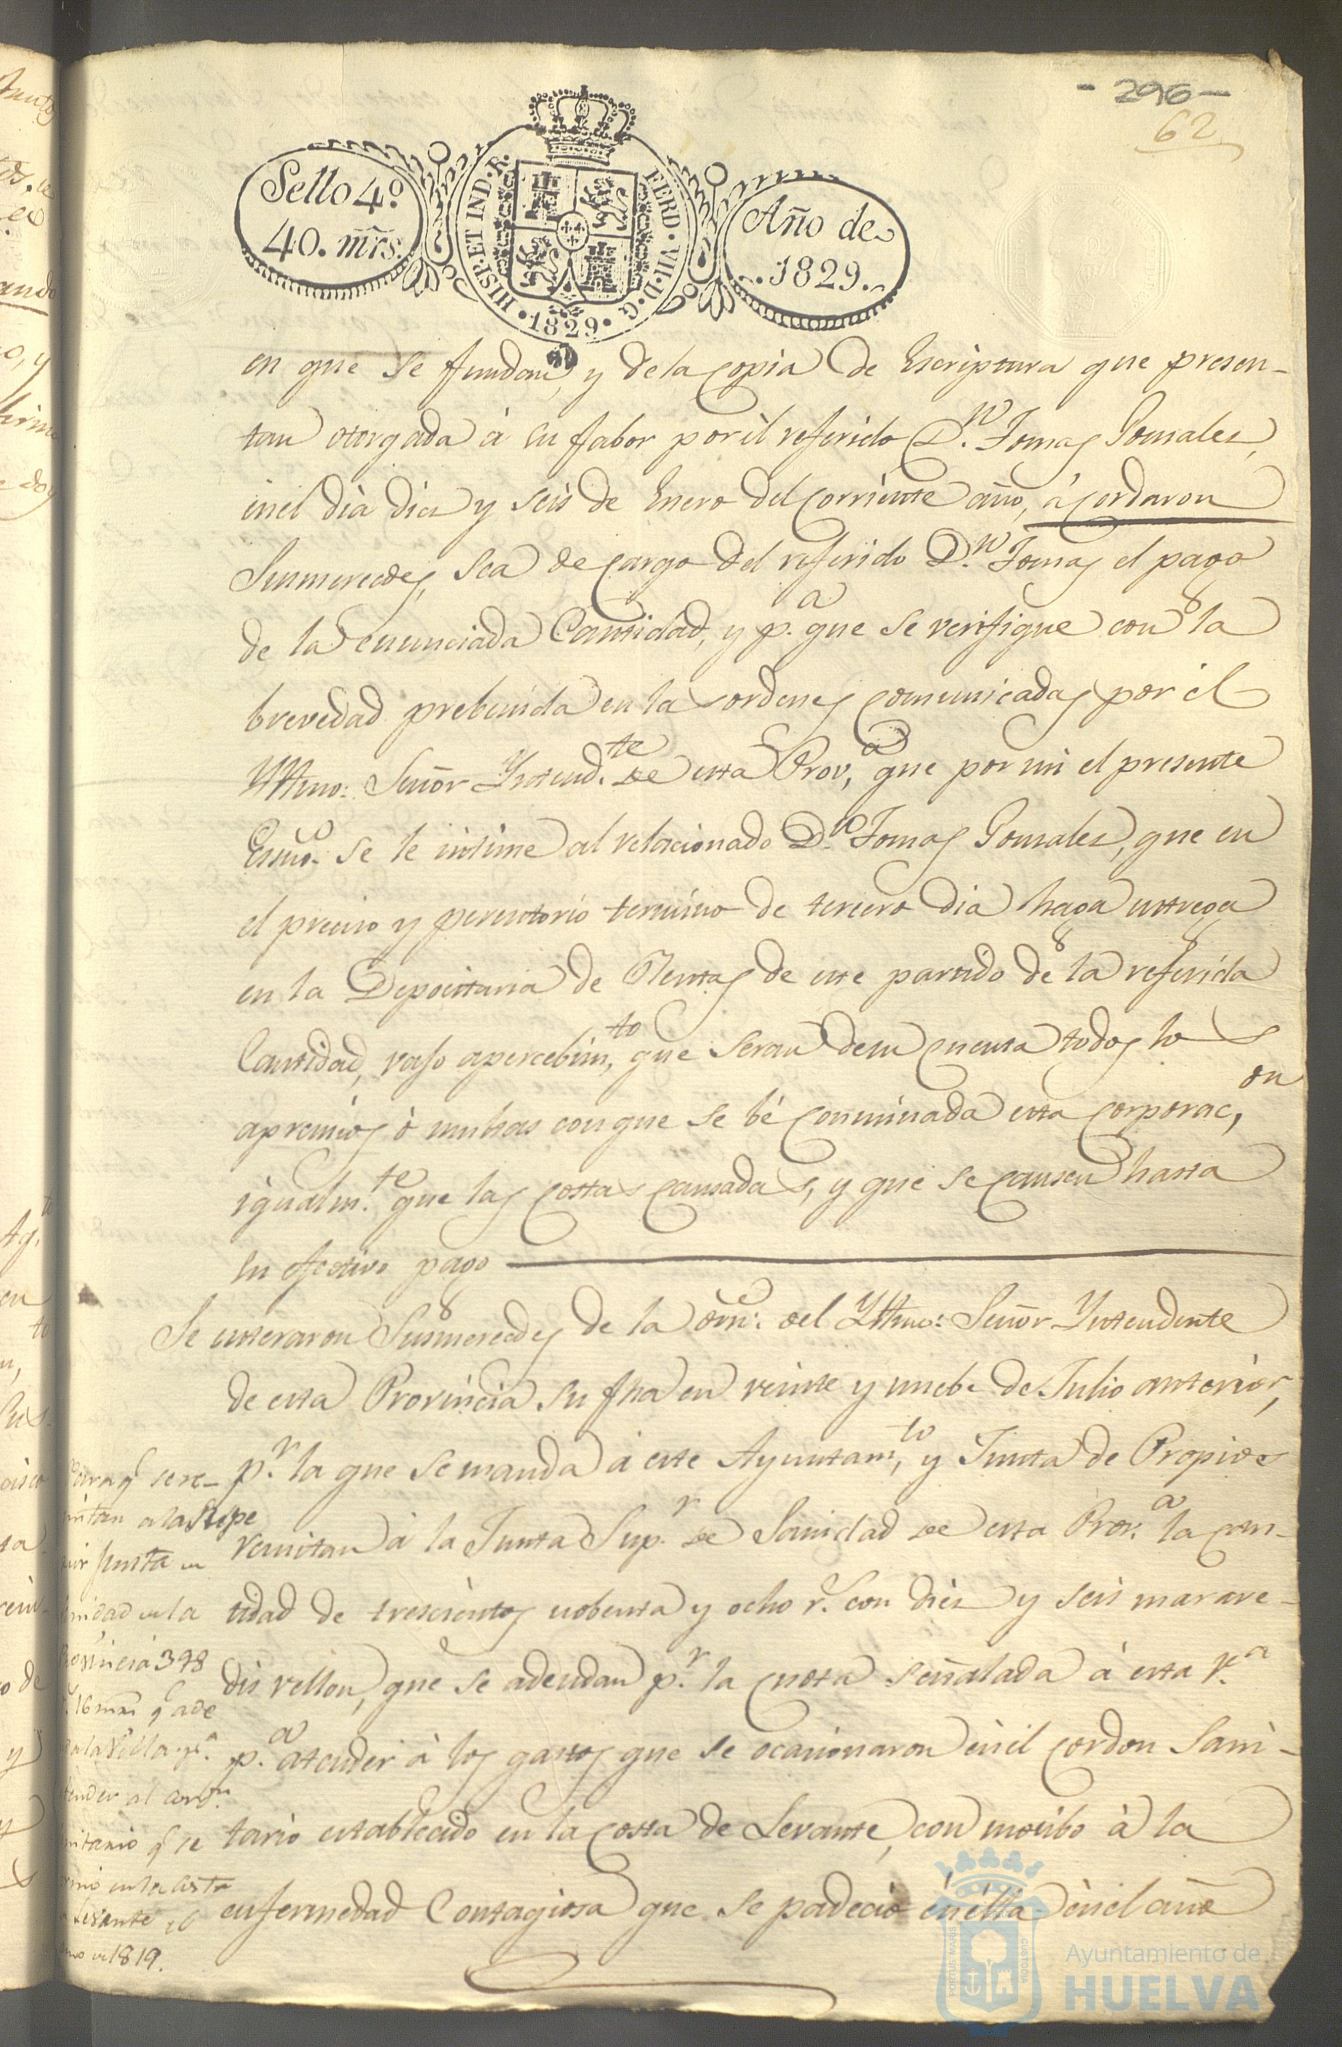 - 296 -
62
Sello 4º
40. mrs.
HISP. ET IND. R.
FERD. VII. D. G.
1829
Año de
1829
en que se fundan, y de la copia de Escriptura que presen-
tan otorgada á su fabor por el referido D.n Tomas Gonsales,
en el dia dies y seis de Enero del corriente año, acordaron
Susmercedes, sea de cargo del referido D.n Tomas el pago
de la enunciada Cantidad, y p.a que se verifique con la
brevedad prebenida en las ordenes comunicadas por el
Yltmo: Señor Yntend.te de esta Prov,a que por mi el presente
Essno. se le intime al relacionado D.n Tomas Gonsales, que en
el preciso y perentorio termino de tercero dia haga entrega
en la Depocitaria de Rentas de este partido de la referida
Cantidad, vajo apercebim,to que seran de su cuenta todos los
apremios ò multas con que se bé conminada esta corporac,on
igualm.te que las costas causadas, y que se causen hasta
su efectivo pago
Se enteraron Susmercedes de la orn: del Yltmo: Señor Yntendente
de esta Provincia su fha en veinte y nuebe de Julio anterior,
p.r la que se manda á este Ayuntam,to y Junta de Propios
remitan à la Junta Sup.r de Sanidad de esta Prov.a la can-
tidad de trescientos nobenta y ocho r.s con dies y seis marave-
dis vellon, que se adeudan p.r la cuota señalada á esta V.a
p.a atender à los gastos que se ocacionaron en el cordon Sani-
tario establecido en la costa de Levante, con motibo à la
enfermedad Contagiosa que se padeció en élla en el año
Para q.e se re-
mitan a la Supe
rior Junta de
Sanidad de la
Provincia 398
r.s 16 mrs q.e ade
da la Villa p.a
atender al cordon
sanitario q.e se
formó en la costa
de Levante el
año de 1819.
Ayuntamiento de
HUELVA